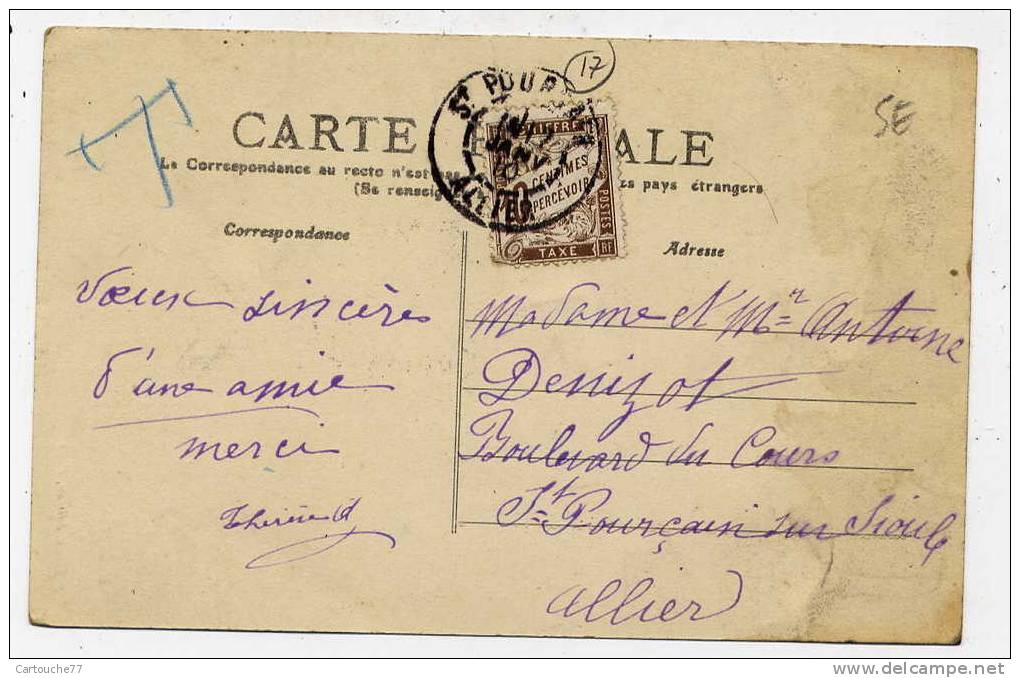 T
17
SE
CARTE ALE
La Correspondance au recto n'est pays étrangers
(Se renseig
Sᵗ POUR
JANV
ALLIER
CHIFFRE
CENTIMES
PERCEVOIR
POSTES
TAXE RF
Correspondance
Adresse
Vœux sincères
d'une amie
merci
Madame et Mʳ Antoine
Denizot
Boulevard du Cours
Sᵗ Pourçain sur Sioule
Allier
Cartouche77
delcampe.net